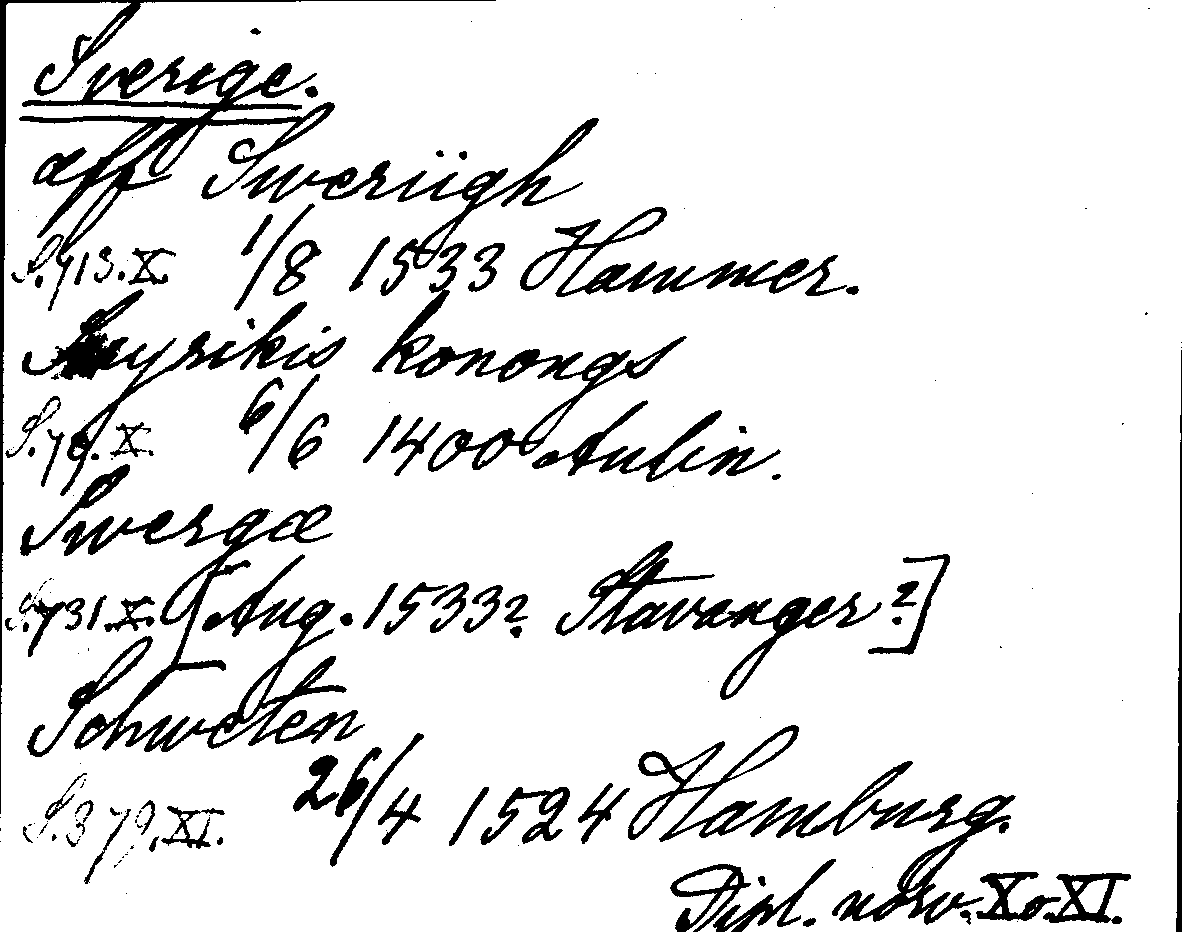 Sverige.
aff Sweriigh
S.713.X. 1/8 1533 Hammer.
konongs
S.79.X. 6/6 1400 Aulin.
Swergæ
S.731.X. [Aug. 1533? Stavanger?]
Schweten
S.379.XI. 26/4 1524 Hamburg.
Dipl. norv. X o XI.